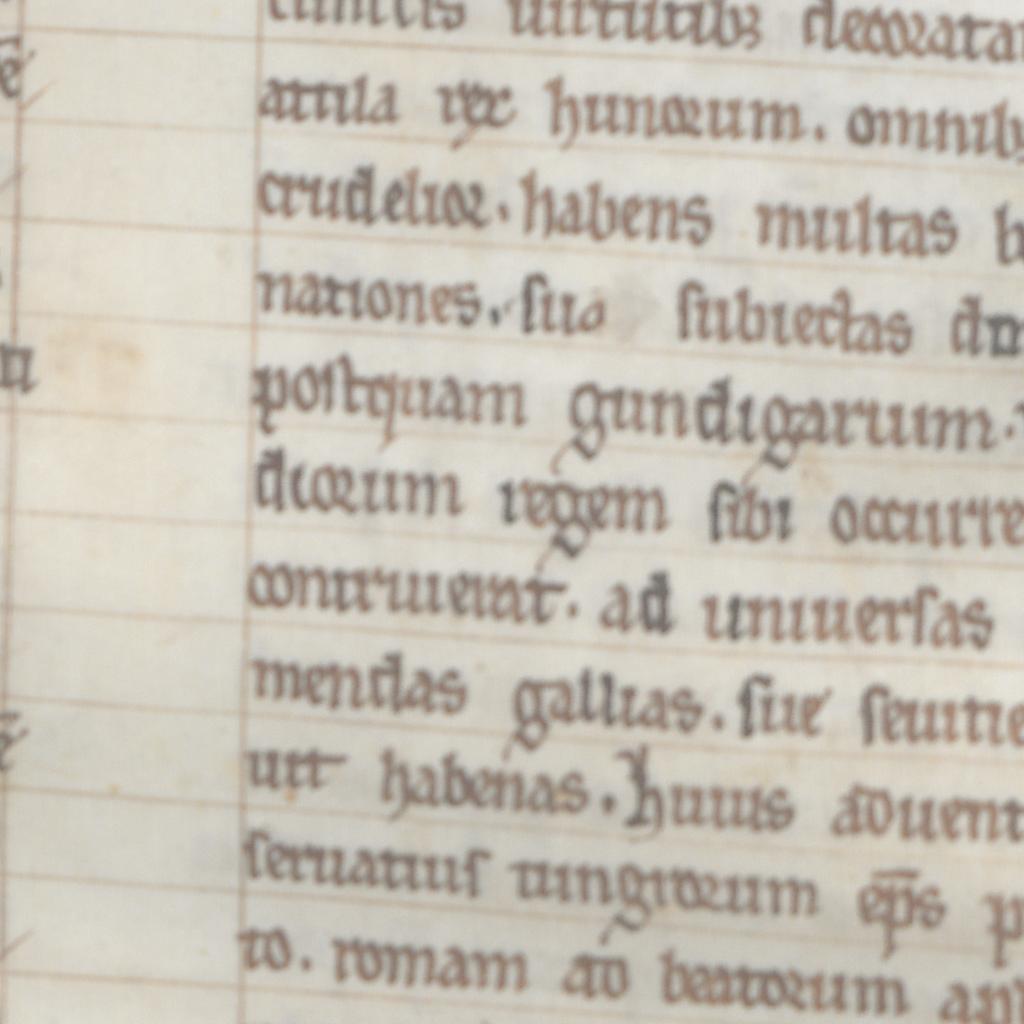 cunctis uirtutibꝫ decorata
attila rex hunorum. omnibꝫ
crudelior. habens multas b
nationes. suo subiectas dn
postquam gundigarium.
dicorum regem sibi occurre
contriuerat. ad uniuersas
mendas gallias. sue seuitie
uit habenas. Huius aduent
seruatius tungrorum ep̅s p
to. romam ad beatorum ap